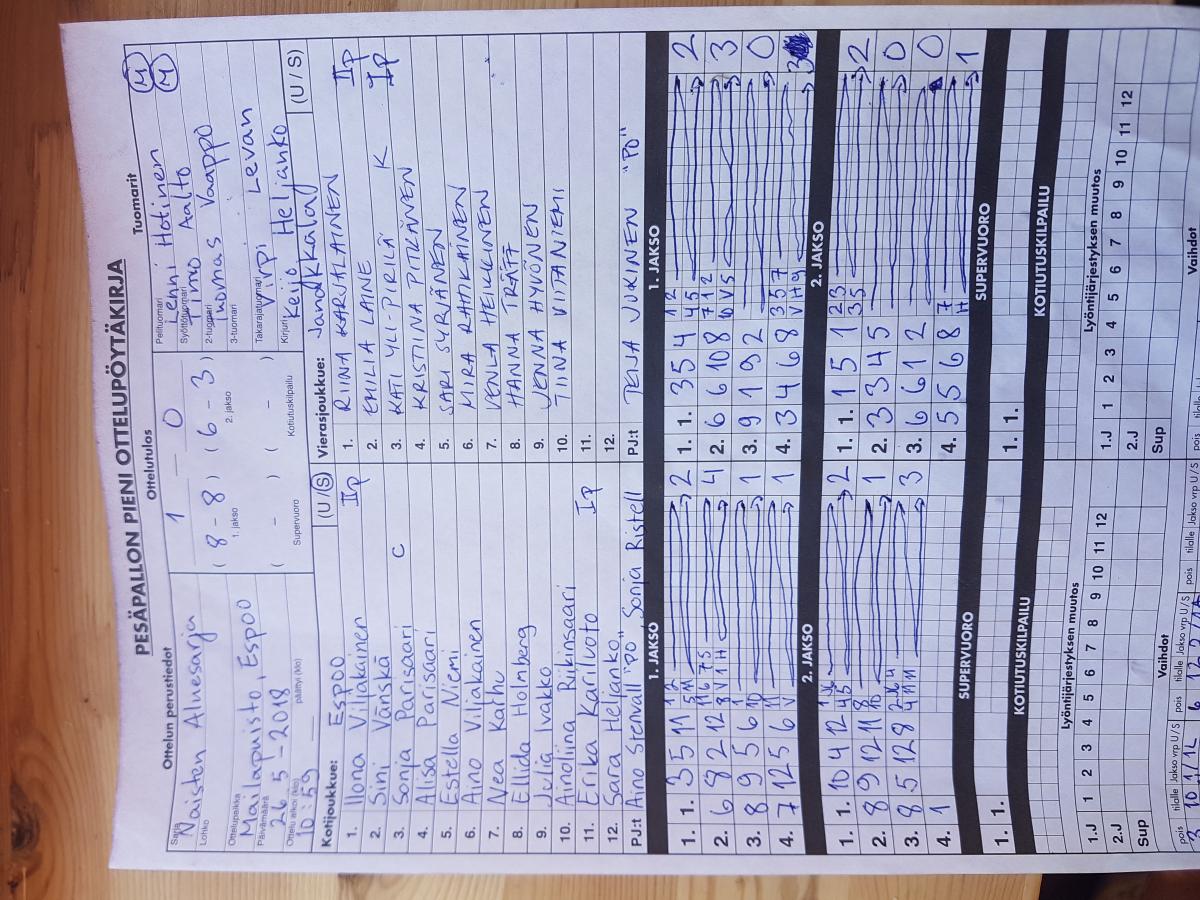 PESÄPALLON PIENI OTTELUPÖYTÄKIRJA
Ottelun perustiedot
Ottelutulos
Tuomarit
Sarja
Naisten Aluesarja
Lohko
Ottelupaikka
Mailapuisto Espoo
Päivämäärä
26.5-2018
Ottelu alkoi (klo)
10:59
päättyi (klo)
1 - 0
( 8 - 8 ) ( 6 - 3 )
1. jakso
2. jakso
( - ) ( - )
Supervuoro
Kotiutuskilpailu
Pelituomari
Lenni Hotinen M
Syöttötuomari
Timo Aalto M
2-tuomari
Tuomas Vaappo
3-tuomari
Takarajatuomari
Virpi Levan
Kirjuri
Keijo Heljanko
Kotijoukkue: Espoo (U/S)
1. Ilona Viljakainen IIp
2. Sini Vänskä
3. Sonja Parisaari C
4. Alisa Parisaari
5. Estella Niemi
6. Aino Viljakainen
7. Nea Karhu
8. Ellida Holmberg
9. Julia Ivakko
10. Ainoliina Riikinsaari
11. Erika Kariluoto Ip
12. Sara Heljanko
PJ:t Aino Stenvall "PO", Sonja Ristell
Vierasjoukkue: Janakkalay (U/S)
1. RIINA KARJALAINEN IIp
2. EMILIA LAINE
3. KATI YLI-PIRILÄ K Ip
4. KRISTIINA PITKÄNEN
5. SARI SYRJÄNEN
6. MIRA RAHIKAINEN
7. VENLA HEIKKINEN
8. HANNA TRÄFF
9. JENNA HYVÖNEN
10. TIINA VIITANIEMI
11.
12.
PJ:t TEIJA JUKINEN "PO"
1. JAKSO
1. 1. 3 5 11 2
2. 6 8 2 12 4
3. 8 9 5 6 1
4. 7 12 5 6 1
2. JAKSO
1. 1. 10 4 12 2
2. 8 9 12 11 1
3. 8 5 12 8 3
4. 1
SUPERVUORO
1. 1.
KOTIUTUSKILPAILU
Lyöntijärjestyksen muutos
1.J 1 2 3 4 5 6 7 8 9 10 11 12
2.J
Sup
Vaihdot
pois tilalle Jakso vrp U/S pois tilalle Jakso vrp U/S pois tilalle Jakso vrp U/S
1. JAKSO
1. 1. 3 5 4 2
2. 6 6 10 8 3
3. 9 1 9 2 0
4. 3 4 6 8 3
2. JAKSO
1. 1. 1 5 1 2
2. 3 3 4 5 0
3. 6 6 1 2 0
4. 5 5 6 8 1
SUPERVUORO
1. 1.
KOTIUTUSKILPAILU
Lyöntijärjestyksen muutos
1.J 1 2 3 4 5 6 7 8 9 10 11 12
2.J
Sup
Vaihdot
pois tilalle Jakso vrp U/S